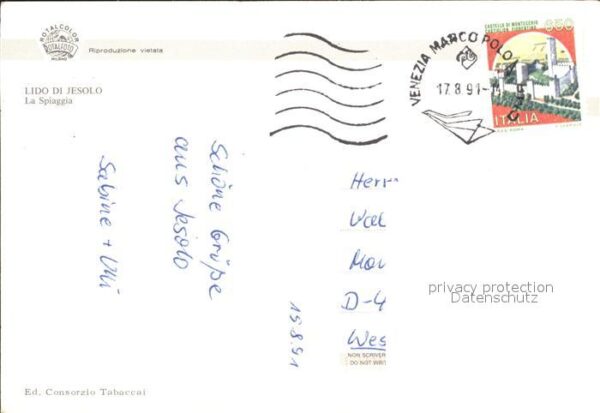 ROTALCOLOR
ROTALFOTO
MILANO
Riproduzione vietata
LIDO DI JESOLO
La Spiaggia
Schöne Grüße
aus Jesolo
Sabine + Ulli
15.8.91
VENEZIA MARCO POLO
17.8.91
CASTELLO DI MONTECCHIO
850
ITALIA
Herr
Mon
D-4
Wes
NON SCRIVER
DO NOT WRIT
privacy protection
Datenschutz
Ed. Consorzio Tabaccai